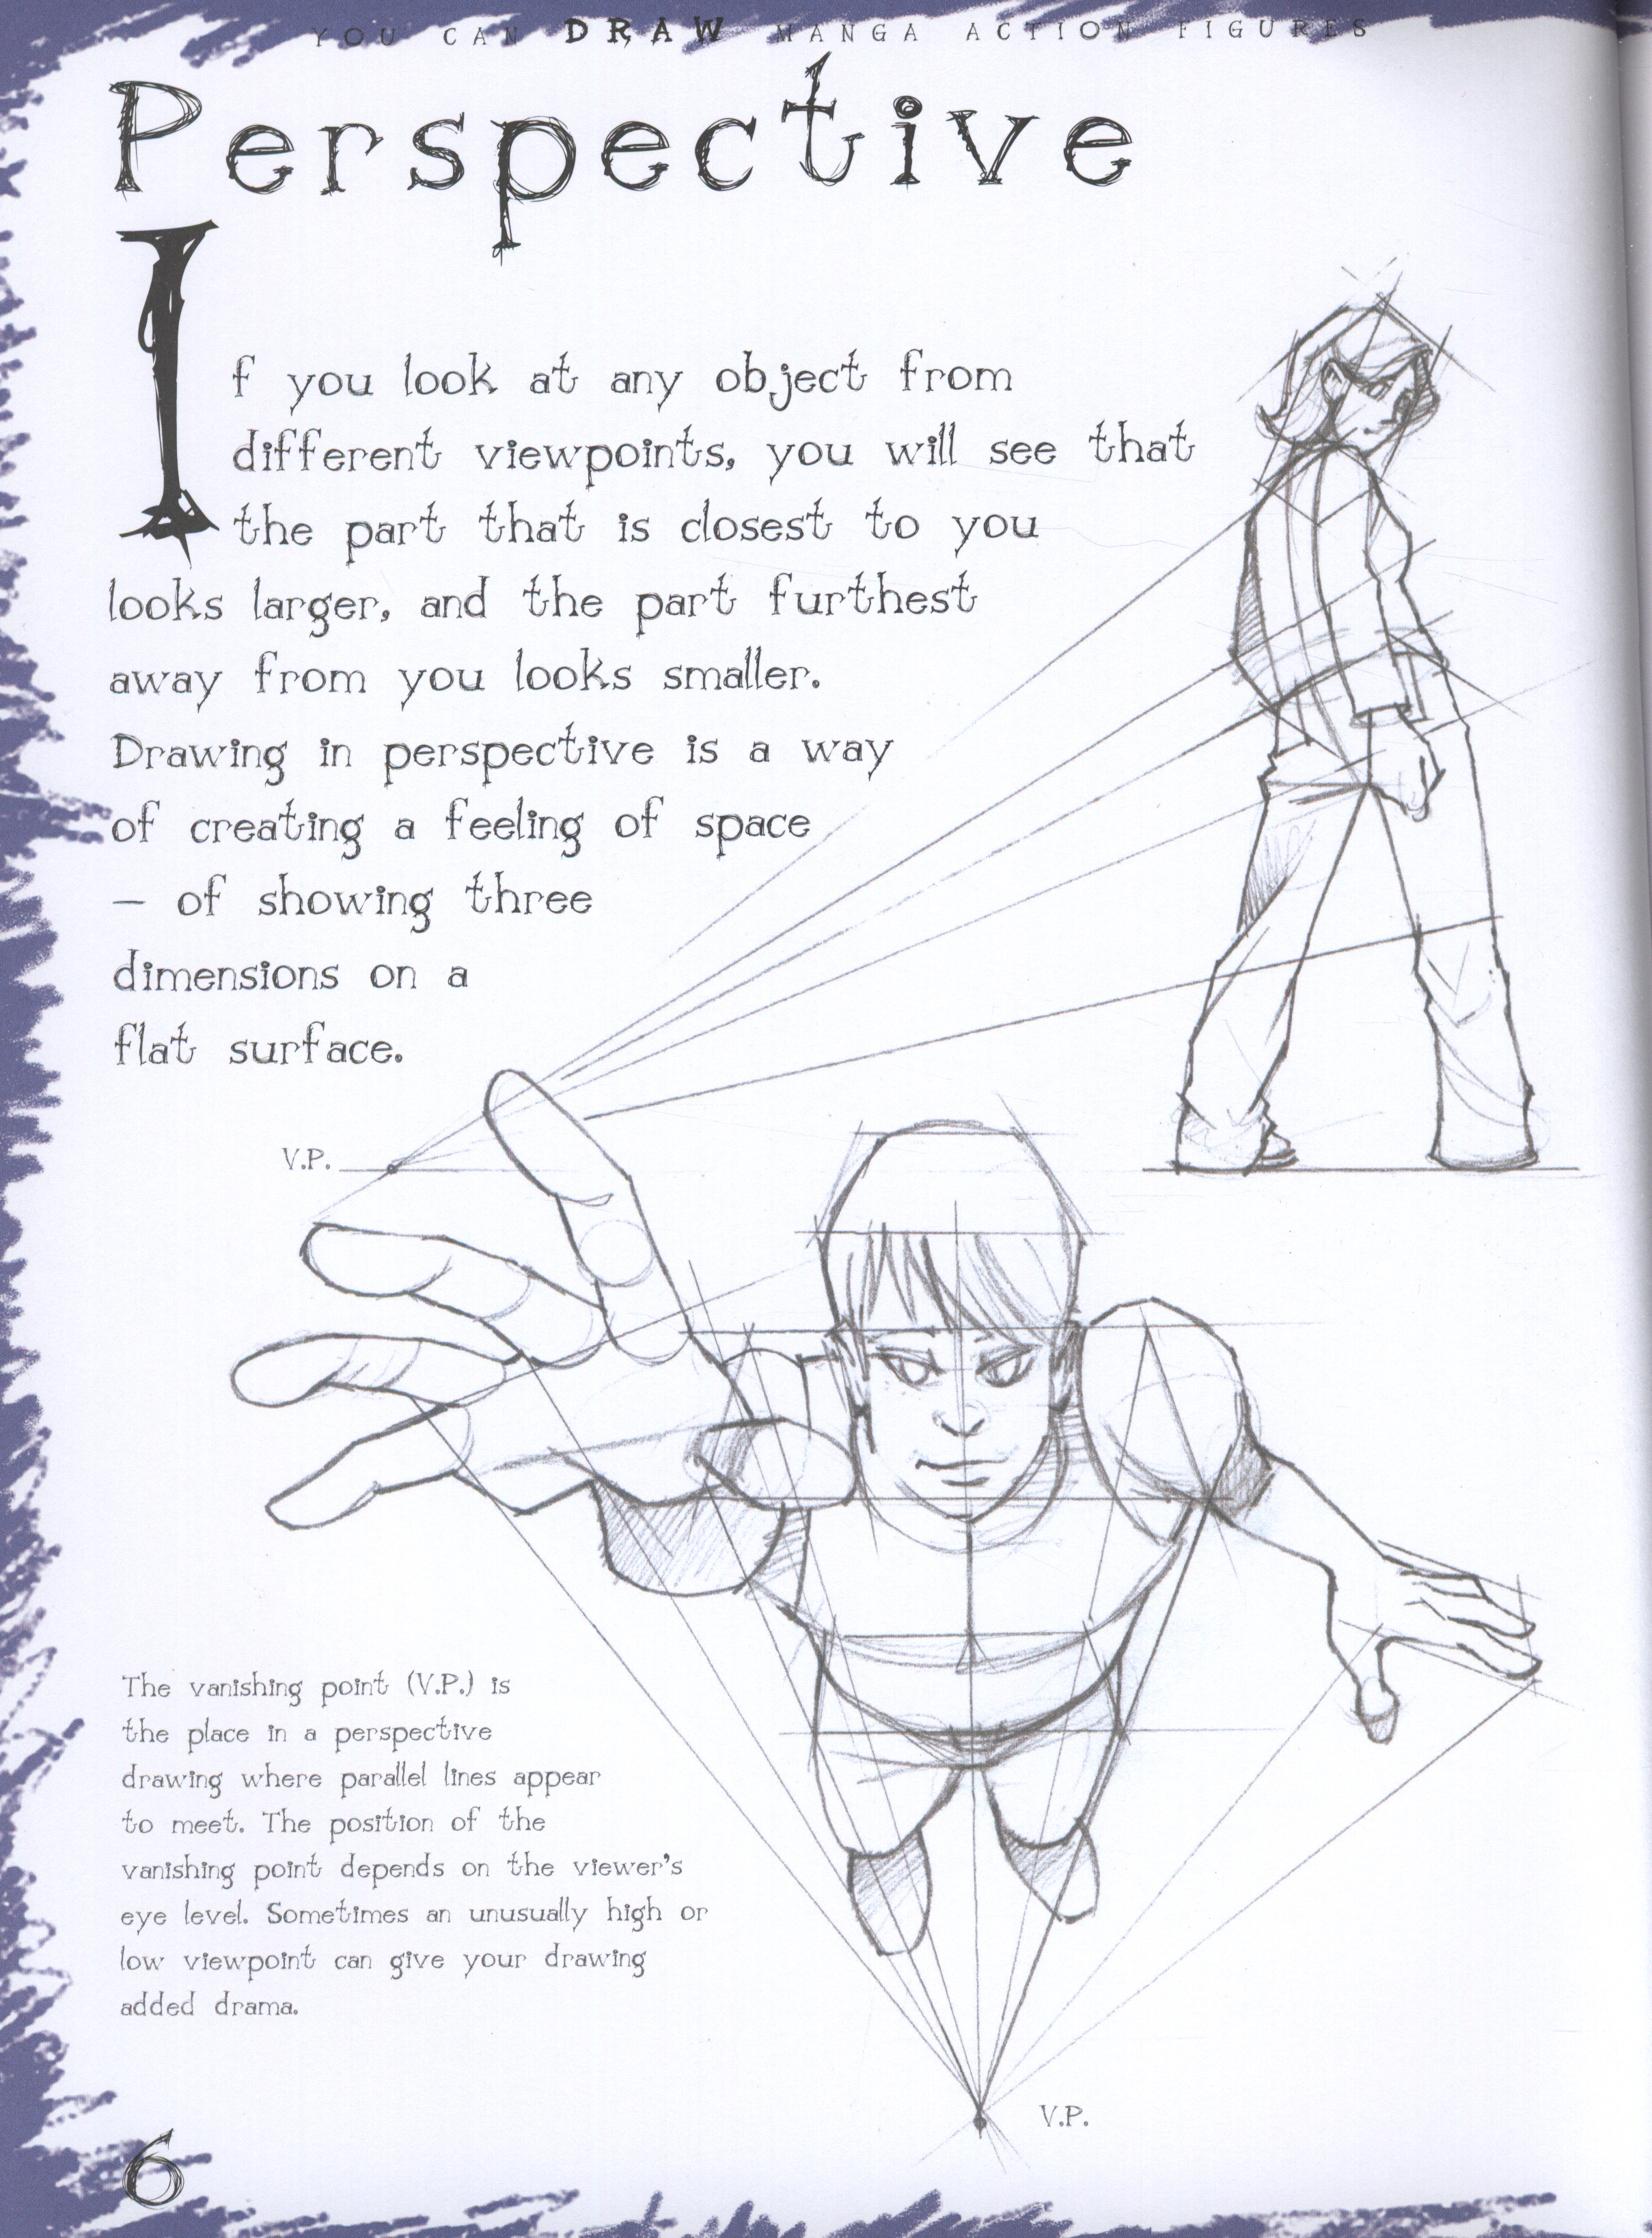 YOU CAN DRAW MANGA ACTION FIGURES
Perspective
If you look at any object from
different viewpoints, you will see that
the part that is closest to you
looks larger, and the part furthest
away from you looks smaller.
Drawing in perspective is a way
of creating a feeling of space
– of showing three
dimensions on a
flat surface.
V.P.
The vanishing point (V.P.) is
the place in a perspective
drawing where parallel lines appear
to meet. The position of the
vanishing point depends on the viewer's
eye level. Sometimes an unusually high or
low viewpoint can give your drawing
added drama.
V.P.
6